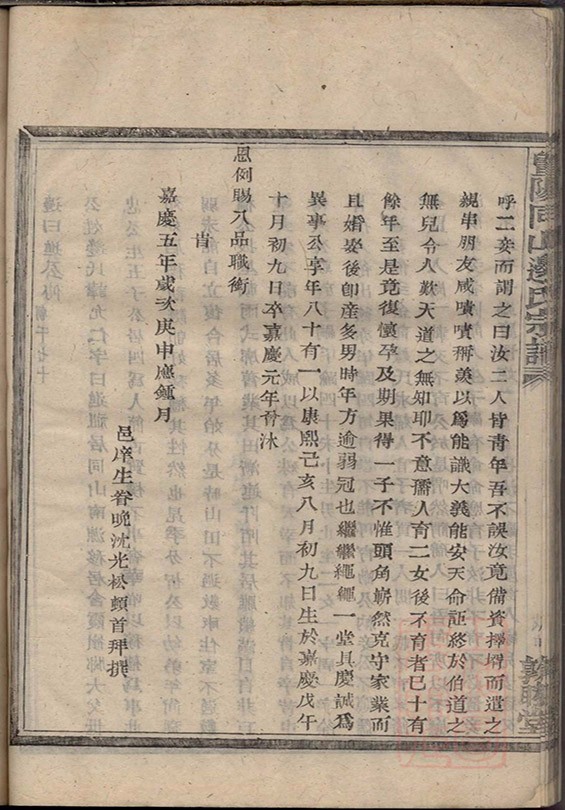 暨陽同山邊氏宗譜
呼二妾而謂之曰汝二人皆青年吾不誤汝竟備資擇壻而遣之
親串朋友咸嘖嘖稱羨以爲能識大義能安天命詎終於伯道之
無兒令人歎天道之無知耶不意孺人育二女後不育者已十有
餘年至是竟復懷孕及期果得一子不惟頭角嶄然克守家業而
且婚娶後卽産多男時年方逾弱冠也繼繼繩繩一堂具慶誠爲
異事公享年八十有一以康熙己亥八月初九日生於嘉慶戊午
十月初九日卒嘉慶元年會沐
恩例賜八品職銜
旹
嘉慶五年歲次庚申應鍾月
邑庠生眷晩沈光松頓首拜撰